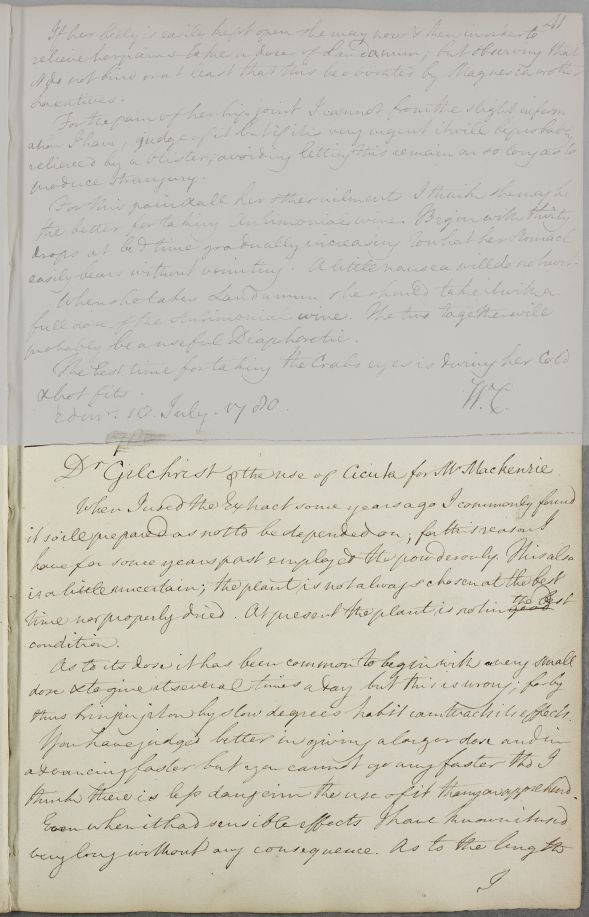 41
If her Belly is easily kept open she may now & then in order to
relieve her pains take a dose of Laudanum; but observing that
it do not bind or at least that this be obviated by Magnesia or other
Laxatives.
For the pain of her hip joint I cannot from the slight inform
ation I have, judge of it but if it is very urgent it will be probably
relieved by a blister, avoiding letting this remain on so long as to
produce Strangury.
For this pain & all her other ailments I think she may be
the better for taking Antimonial wine. Begin with thirty
drops at bed time gradually increasing to what her stomach
easily bears without vomiting. A little nausea will do no hurt.
When she takes Laudanum she should take it with a
full dose of the Antimonial wine. The two together will
probably be a useful Diaphoretic.
The best time for taking the Crabs eyes is during her Cold
& hot fits.
Edinr. 10 July. 1780. W.C.
Dr Gilchrist & the use of Cicuta for Mr Mackenzie
When I used the Extract some years ago I commonly found
it so ile prepared as not to be depended on; for this reason I
have for some years past employed the powder only. This also
is a little uncertain; the plant is not always chosen at the best
time nor properly dried. At present the plant is not in good the best
condition.
As to its dose it has been common to begin with a very small
dose & to give it several times a day but this is wrong; for by
thus bringing it on by slow degrees habit counteracts its effects.
You have judged better in giving a larger dose and in
advancing faster but you cannot go any faster tho I
think there is less danger in the use of it than you apprehend.
Even when it had sensible effects I have known it used
very long without any consequence. As to the length
I